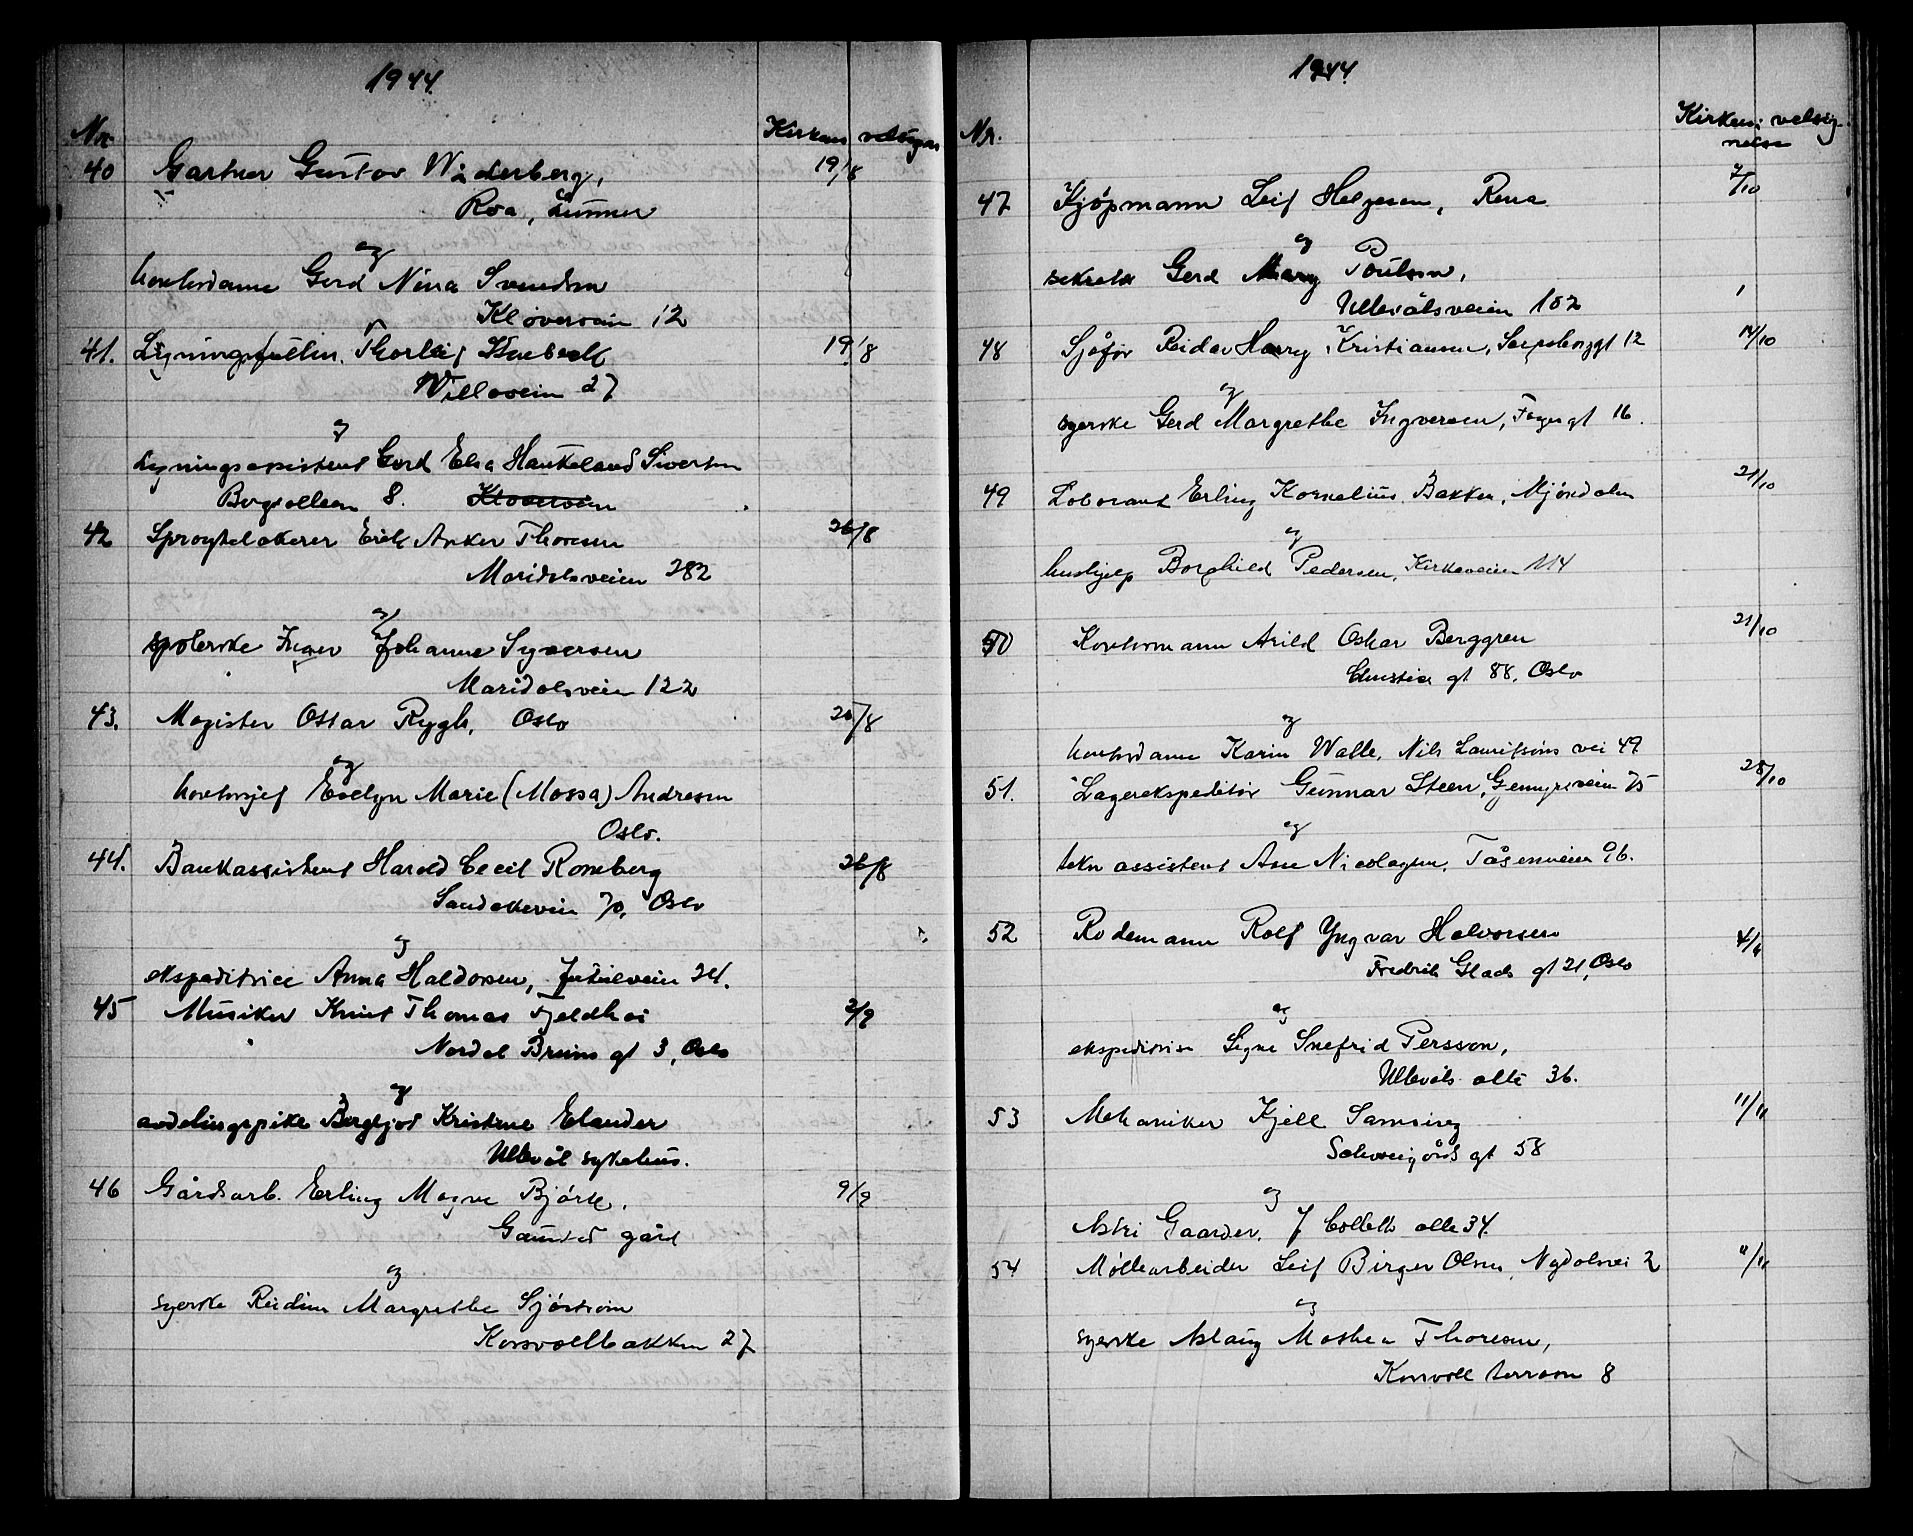 1944.
Nr. Kirkens velsigne
40 Gartner Gustav Widerberg, 19/8
Roa, Lunner
og
kontordame Gerd Nina Svendsen
Kløverveien 12
41. Ligningsfullm. Thorleif 19/8
Willaveien 27
og
Ligningsassistent Gerd Elsa Haukeland Sivertsen
Bergsalleen 8. Kløverveien
42 Sprøytelakerer Erik Anker Thoresen 26/8
Maridalsveien 282
og
spolerske Inger Johanne Syversen
Maridalsveien 122
43. Magister Ottar Rygh, Oslo 26/8
og
kontorsjef Evelyn Marie (Mossa) Andresen
Oslo.
44. Bankassistent Harold Cecil Romberg 26/8
Sandakerveien 70, Oslo
og
ekspeditrice Anna Haldorsen, Jutulveien 24.
45 Musiker Knut Thomas Fjeldhoi 2/9
Nordal Bruns gt 3, Oslo
og
avdelingspike Bergljot Kristine Elander
Ullevål sykehus.
46 Gårdsarb. Erling Magne Bjørke, 9/9
Gaustad gård
og
syerske Reidun Margrethe Sjöström
Korsvollbakken 27
1944.
Nr. Kirkens velsig-
nelse
47 Kjøpmann Leif Helgesen, Rena 7/10
og
sekretær Gerd Mary Poulsen,
Ullevålsveien 102
48 Sjåfør Reidar Harry Kristiansen, Sarpsborggt 12 14/10
og
syerske Gerd Margrethe Ingversen, Fagergt 16.
49 Laborant Erling Kornelius Bakken, Mjøndalen 21/10
og
hushjelp Borghild Pedersen, Kirkeveien 114
50 Kontormann Arild Oskar Berggren 21/10
gt 88, Oslo
og
kontordame Karin Walle, Nils Lauritssøns vei 49
51. Lagerekspeditør Gunnar Steen, Gjennyrsveien 75 28/10
og
tekn assistent Ase Nicolaysen, Tåsenveien 96.
52 Rodemann Rolf Yngvar Halvorsen 4/11
Fredrik Glads gt 21, Oslo
og
ekspeditrise Signe Snefrid Persson,
Ullevåls alle 36.
53 Mekaniker Kjell Samsing 11/11
Schweigårds gt 58
og
Astri Gaarder, J Colletts alle 34.
54 Møllearbeider Leif Birger Olsen, Nydalsvei 2 11/11
og
syerske Aslaug Mathea Thoresen,
Korsvoll terrasse 8